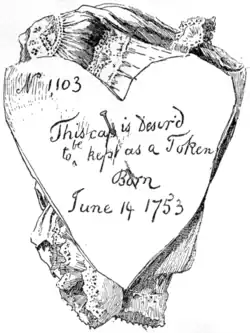 No 1103
This cap is desir'd
to be kept as a Token
Born
June 14 1753